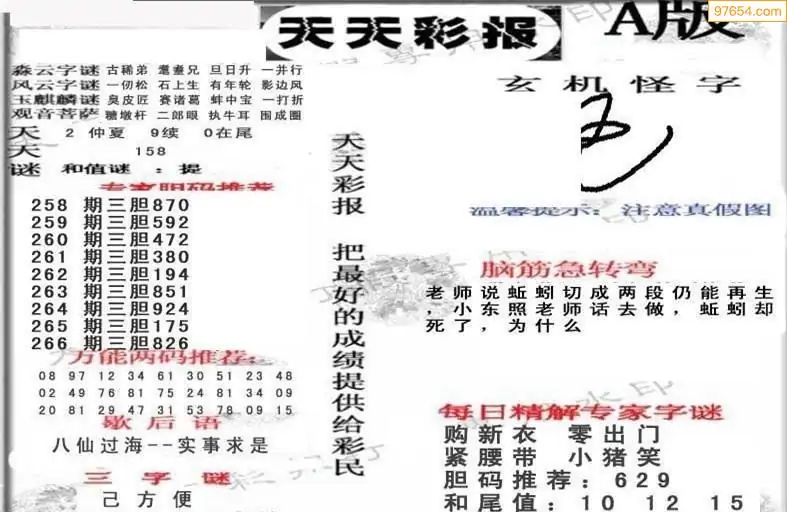 97654.com
天天彩报
A版
森云字谜 古稀弟 耄耋兄 旦日升 一并行
风云字谜 一仞松 石上生 有年轮 影边风
玉麒麟谜 臭皮匠 赛诸葛 蚌中宝 一打折
观音菩萨 糖墩杆 二郎眼 执牛耳 围成圈
天 2 仲夏 9续 0在尾
天 158
谜 和值谜 : 提
专家胆码推荐
258 期三胆870
259 期三胆592
260 期三胆472
261 期三胆380
262 期三胆194
263 期三胆851
264 期三胆924
265 期三胆175
266 期三胆826
万能两码推荐:
08 97 12 34 61 30 51 23 48
02 49 76 81 75 24 81 34 09
20 81 29 47 31 53 78 09 15
歇后语
八仙过海--实事求是
三字谜
己方便
天天彩报 把最好的成绩提供给彩民
玄机怪字
温馨提示: 注意真假图
脑筋急转弯
老师说蚯蚓切成两段仍能再生
，小东照老师话去做，蚯蚓却
死了，为什么
每日精解专家字谜
购新衣 零出门
紧腰带 小猪笑
胆码推荐: 629
和尾值: 10 12 15